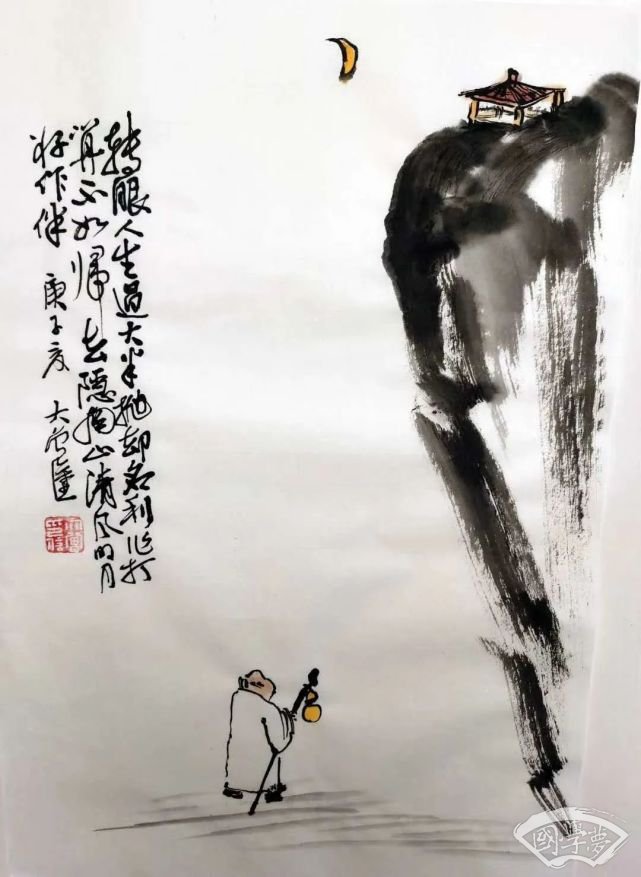 转眼人生過大半抛却名利作打
算不如歸去隐南山清风明月
好作伴 庚子夏 大
國學夢